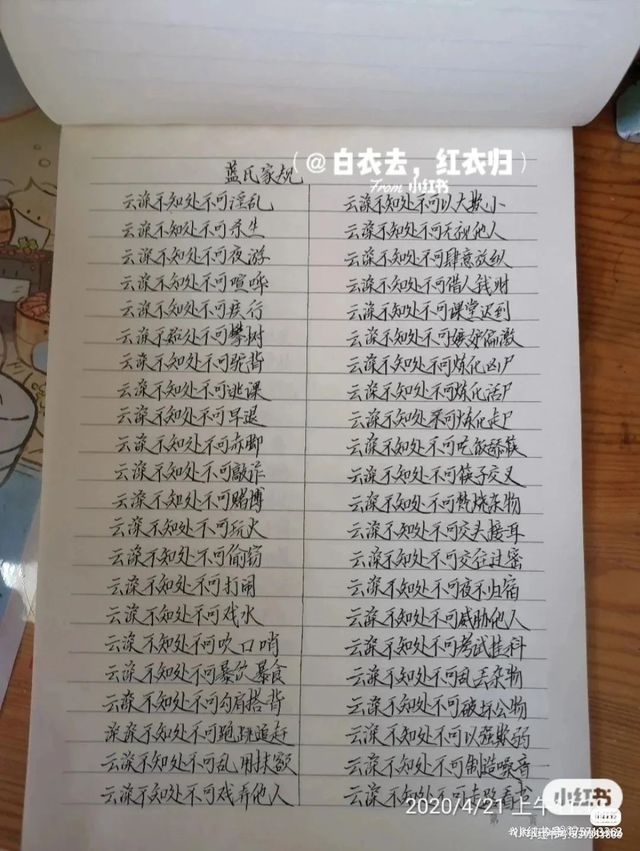 (@白衣去，红衣归)
From 小红书
蓝氏家规
云深不知处不可淫乱
云深不知处不可杀生
云深不知处不可夜游
云深不知处不可喧哗
云深不知处不可疾行
云深不知处不可攀树
云深不知处不可驼背
云深不知处不可逃课
云深不知处不可早退
云深不知处不可赤脚
云深不知处不可敲诈
云深不知处不可赌博
云深不知处不可玩火
云深不知处不可偷窃
云深不知处不可打闹
云深不知处不可戏水
云深不知处不可吹口哨
云深不知处不可暴饮暴食
云深不知处不可勾肩搭背
深深不知处不可跑跳追赶
云深不知处不可乱用抹额
云深不知处不可戏弄他人
云深不知处不可以大欺小
云深不知处不可无视他人
云深不知处不可肆意放纵
云深不知处不可借人钱财
云深不知处不可课堂迟到
云深不知处不可嫉妒偏激
云深不知处不可炼化凶尸
云深不知处不可炼化活尸
云深不知处不可炼化走尸
云深不知处不可吃饭舔筷
云深不知处不可筷子交叉
云深不知处不可焚烧杂物
云深不知处不可交头接耳
云深不知处不可交往过密
云深不知处不可夜不归宿
云深不知处不可威胁他人
云深不知处不可考试挂科
云深不知处不可乱丢杂物
云深不知处不可破坏公物
云深不知处不可以强欺弱
云深不知处不可制造噪音
云深不知处不可走路看书
2020/4/21 上午
小红书
小红书号